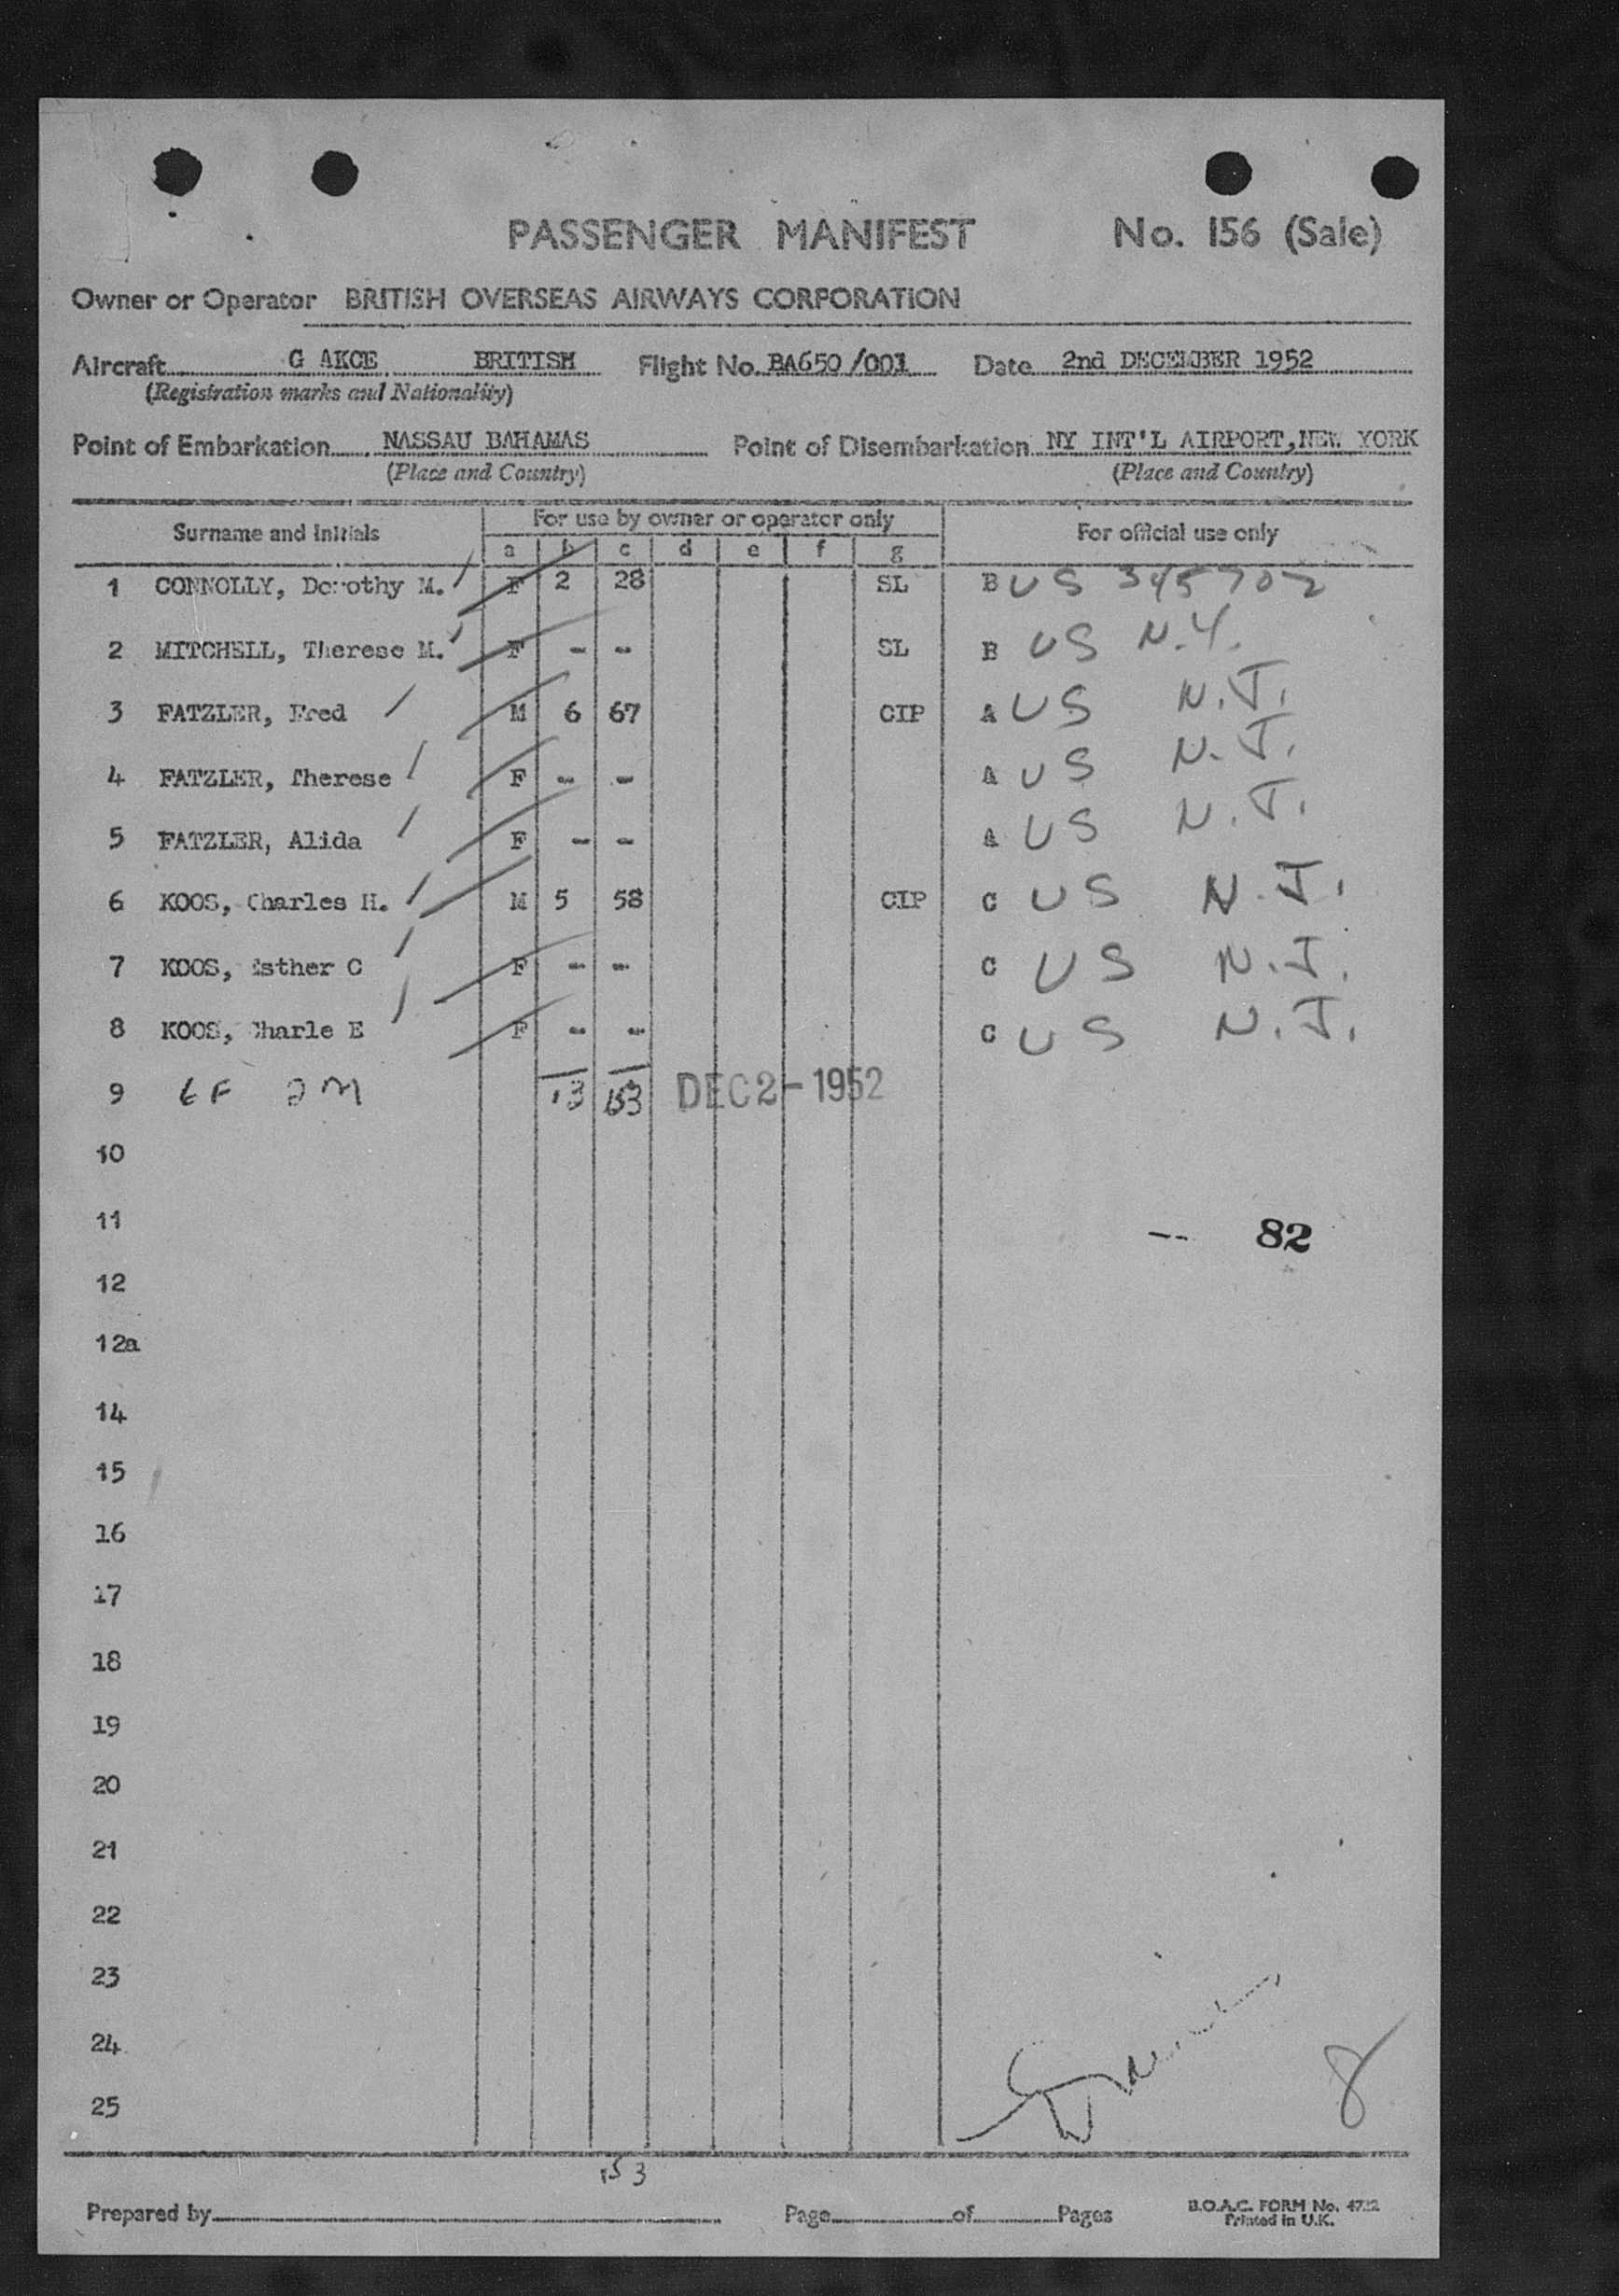 PASSENGER MANIFEST No. 156 (Sale)
Owner or Operator BRITISH OVERSEAS AIRWAYS CORPORATION
Aircraft G AKCE BRITISH Flight No. BA650/001 Date 2nd DECEMBER 1952
(Registration marks and Nationality)
Point of Embarkation NASSAU BAHAMAS Point of Disembarkation NY INT'L AIRPORT, NEW YORK
(Place and Country) (Place and Country)
Surname and Initials For use by owner or operator only For official use only
a b c d e f g
1 CONNOLLY, Dorothy M. F 2 28 SL B US 345702
2 MITCHELL, Therese M. F - - SL B US N.Y.
3 FATZLER, Fred M 6 67 CIP A US N.J.
4 FATZLER, Therese F - - A US N.J.
5 FATZLER, Alida F - - A US N.J.
6 KOOS, Charles H. M 5 58 CIP C US N.J.
7 KOOS, Esther C F - - C US N.J.
8 KOOS, Charle E F - - C US N.J.
9 6F 2M 13 153 DEC 2-1952
10
11 -- 82
12
12a
14
15
16
17
18
19
20
21
22
23
24
25 8
153
Prepared by Page of Pages B.O.A.C. FORM No. 4722
Printed in U.K.